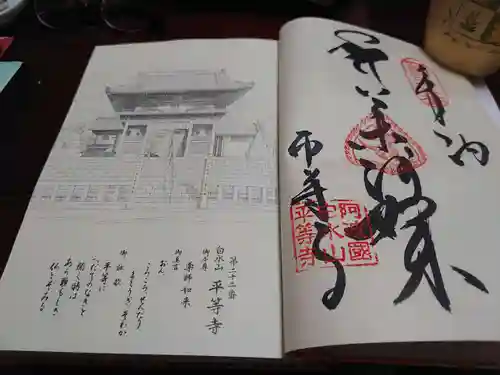 奉納
平等寺
阿波國
白水山
平等寺
第二十二番
白水山 平等寺
御本尊
薬師如来
御真言
おん
ころころ せんだり
まとうぎ そわか
御詠歌
平等に
へだてのなきと
聞く時は
あら頼もしき
仏とぞみる